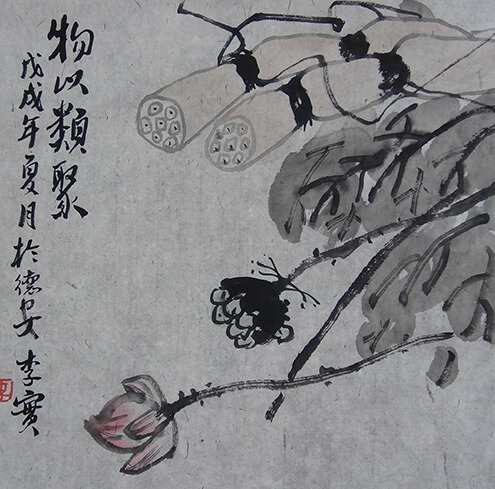 物以類聚
戊戌年夏月於德安 李實